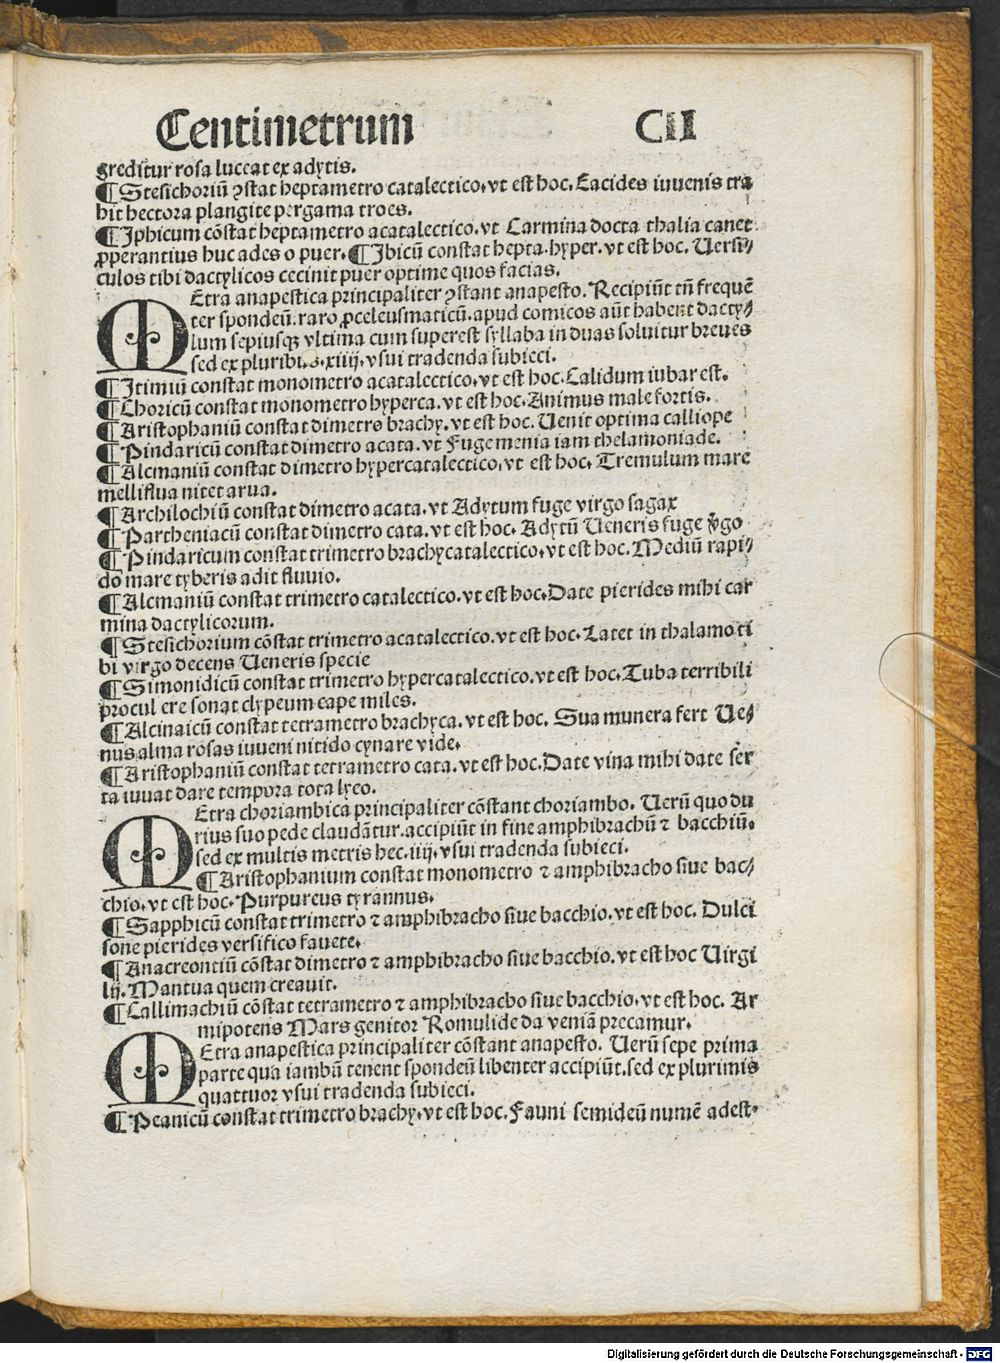 Centimetrum CII
greditur rosa luceat ex adytis.
¶ Stesichoriū ꝯstat heptametro catalectico. vt est hoc. Eacides iuuenis tra
hit hectora plangite pergama troes.
¶ Iphicum cōstat heptametro acatalectico. vt Carmina docta thalia canet
ꝓperantius huc ades o puer. ¶ Ibicū constat hepta. hyper. vt est hoc. Uersi⸗
culos tibi dactylicos cecinit puer optime quos facias.
MEtra anapestica principaliter ꝯstant anapesto. Recipiūt tn̄ frequē
ter spondeū. raro ꝓceleusmaticū. apud comicos aūt habent dacty⸗
lum sepiusqꝫ vltima cum superest syllaba in duas soluitur breues
sed ex pluribus. xiiij. vsui tradenda subieci.
¶ Itimiū constat monometro acatalectico. vt est hoc. Calidum iubar est.
¶ Choricū constat monometro hyperca. vt est hoc. Animus male fortis.
¶ Aristophaniū constat dimetro brachy. vt est hoc. Uenit optima calliope
¶ Pindaricū constat dimetro acata. vt Fuge menia iam thelamoniade.
¶ Alcmaniū constat dimetro hypercatalectico. vt est hoc. Tremulum mare
melliflua nitet arua.
¶ Archilochiū constat dimetro acata. vt Adytum fuge virgo sagax
¶ Partheniacū constat dimetro cata. vt est hoc. Adytū Ueneris fuge v̄go
¶ Pindaricum constat trimetro brachycatalectico. vt est hoc. Mediū rapi⸗
do mare tyberis adit fluuio.
¶ Alcmaniū constat trimetro catalectico. vt est hoc. Date pierides mihi car
mina dactylicorum.
¶ Stesichorium cōstat trimetro acatalectico. vt est hoc. Latet in thalamo ti
bi virgo decens Ueneris specie
¶ Simonidicū constat trimetro hypercatalectico. vt est hoc. Tuba terribili
procul ere sonat clypeum cape miles.
¶ Alcinaicū constat tetrametro brachyca. vt est hoc. Sua munera fert Ue⸗
nus alma rosas iuueni nitido cynare vide.
¶ Aristophaniū constat tetrametro cata. vt est hoc. Date vina mihi date ser
ta iuuat dare tempora tota lyeo.
MEtra choriambica principaliter cōstant choriambo. Uerū quo du
rius suo pede claudāntur. accipiūt in fine amphibrachū ⁊ bacchiū.
sed ex multis metris hec. iiij. vsui tradenda subieci.
¶ Aristophanium constat monometro ⁊ amphibracho siue bac⸗
chio. vt est hoc. Purpureus tyrannus.
¶ Sapphicū constat trimetro ⁊ amphibracho siue bacchio. vt est hoc. Dulci
sone pierides versifico fauete.
¶ Anacreontiū cōstat dimetro ⁊ amphibracho siue bacchio. vt est hoc Uirgi
lij. Mantua quem creauit.
¶ Callimachiū cōstat tetrametro ⁊ amphibracho siue bacchio. vt est hoc. Ar
mipotens Mars genitor Romulide da veniā precamur.
MEtra anapestica principaliter cōstant anapesto. Uerū sepe prima
parte qua iambū tenent spondeū libenter accipiūt. sed ex plurimis
quattuor vsui tradenda subieci.
¶ Peanicū constat trimetro brachy. vt est hoc. Fauni semideū numē adest.
Digitalisierung gefördert durch die Deutsche Forschungsgemeinschaft - DFG